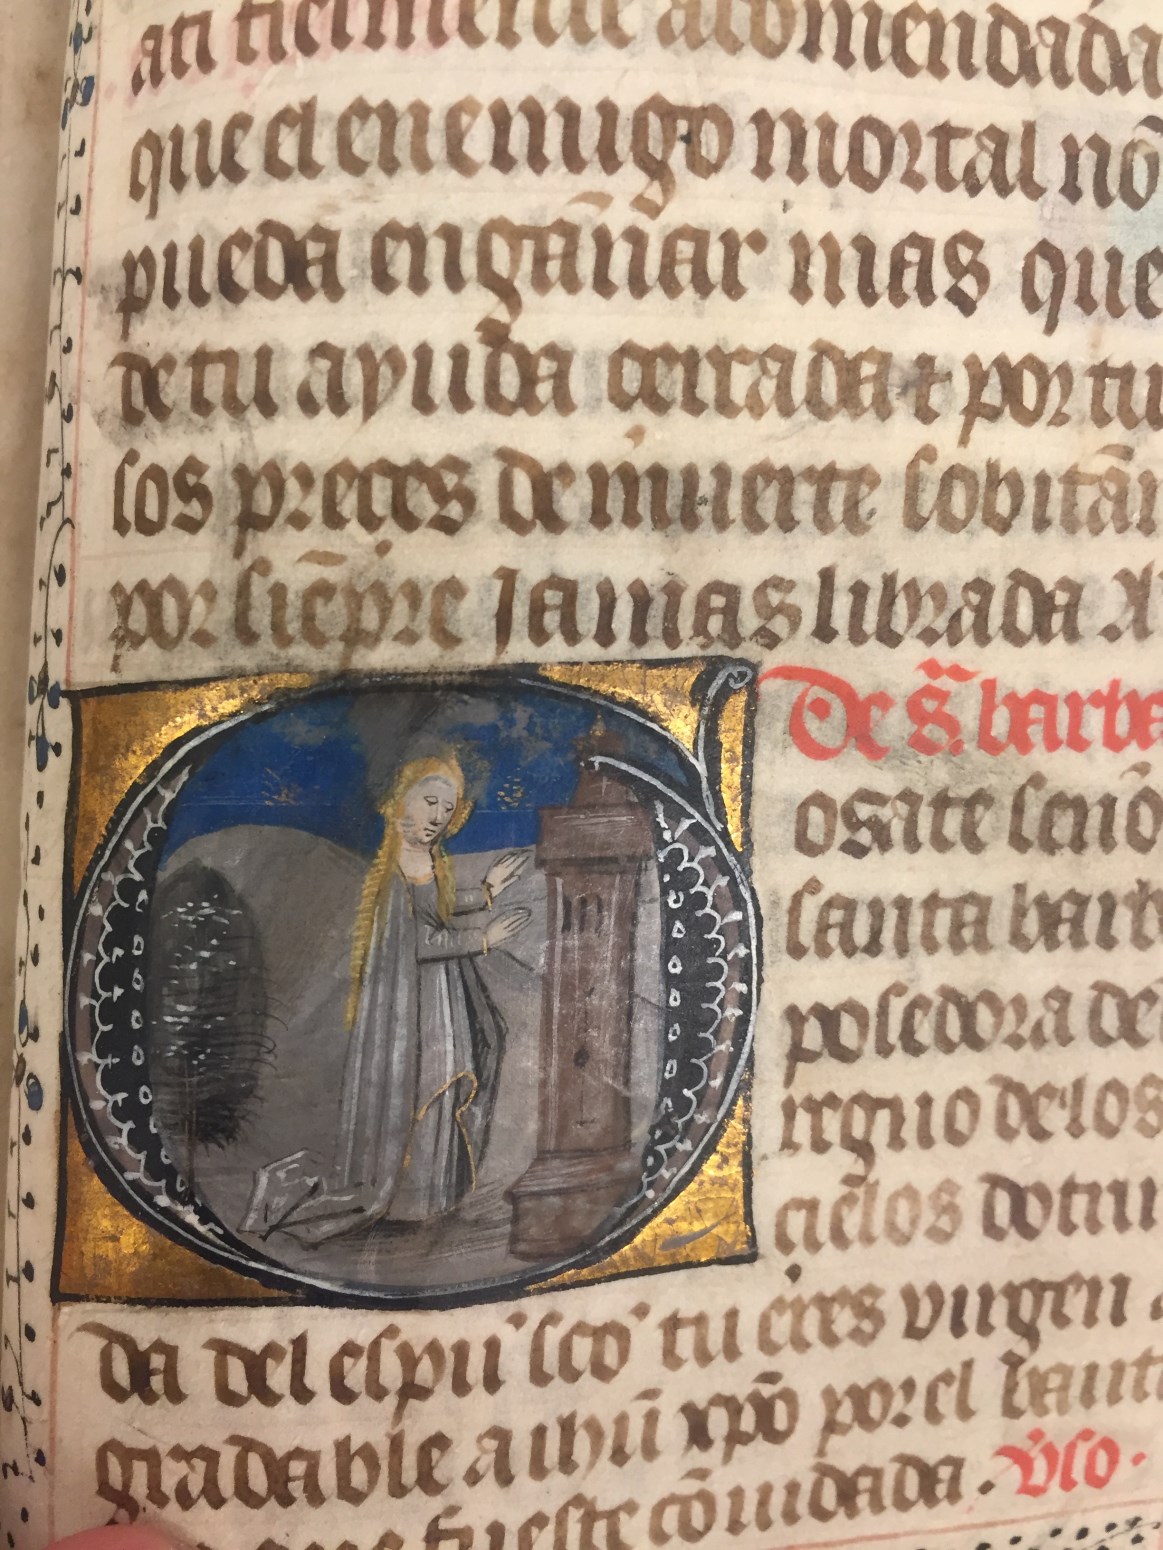 ati fielmente acomendada
que el enemigo mortal nō
puedā engān̄ar mas que
de tu ayuda cerrada ⁊ por tu
los preces de muerte sobitāi
por siēpre Jamas librada
De s̄. barba
osate señō
santa barb
posedora del
regno de los
cielos dottu
da del espū sc̄o tu eres virgen
gradable a ihū xp̄o por el bauti
que fueste cōuidada. v̄so.